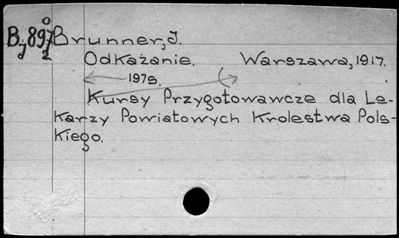 Bj897 Brunner, J.
o
2
Odkażanie. Warszawa, 1917.
197s. ( )
Kursy Przygotowawcze dla Le-
karzy Powiatowych Krolestwa Pols-
kiego.